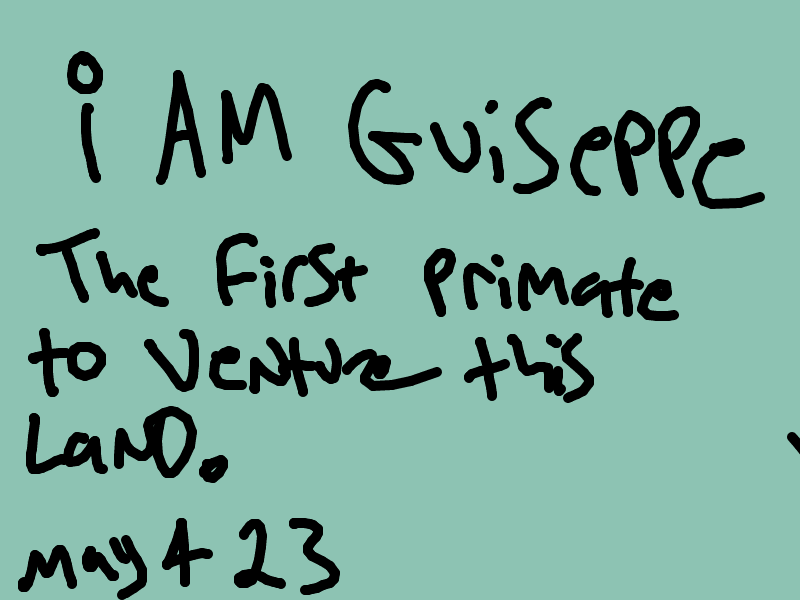 i AM GuiSePPe
The First Primate
to venture this
LanD.
may 4 23